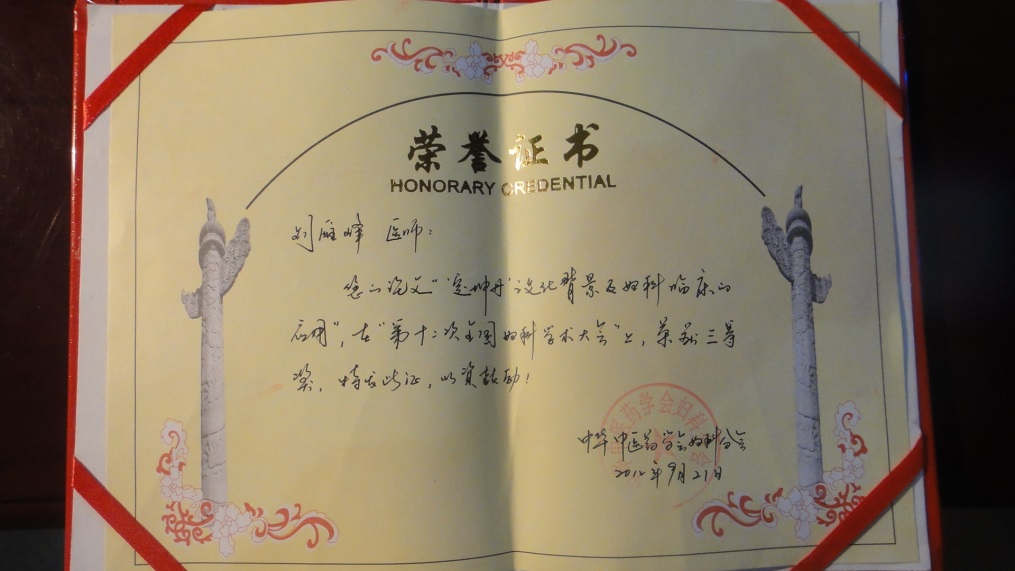 荣誉证书
HONORARY CREDENTIAL
刘雁峰 医师：
您的论文“‘定坤丹’文化背景及妇科临床的
应用”，在“第十二次全国妇科学术大会”上，荣获三等
奖，特发此证，以资鼓励！
中华中医药学会妇科分会
2012年9月21日